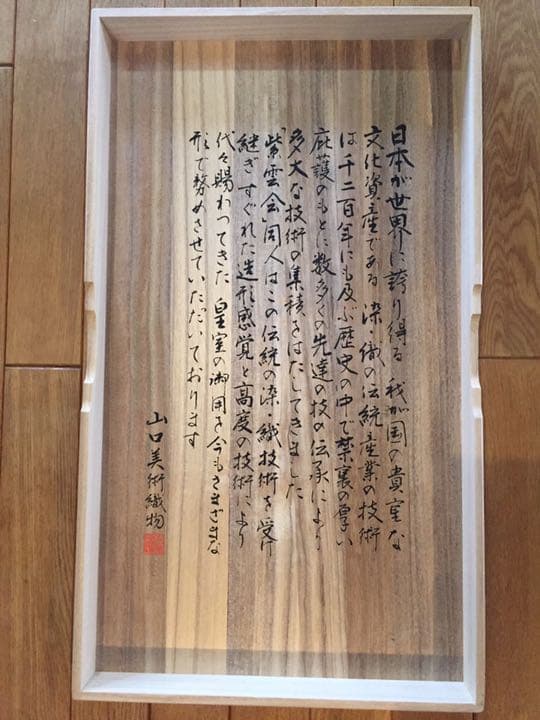 日本が世界に誇り得る 我が国の貴重な
文化資産である 染・織の伝統産業の技術
は千二百年にも及ぶ歴史の中で禁裏の厚い
庇護のもとに数多くの先達の技の伝承により
多大な技術の集積をはたしてきました
「紫雲会」同人はこの伝統の染・織技術を受け
継ぎすぐれた造形感覚と高度の技術により
代々賜わってきた 皇室の御用を今もさまざまな
形で努めさせていただいております
山口美術織物